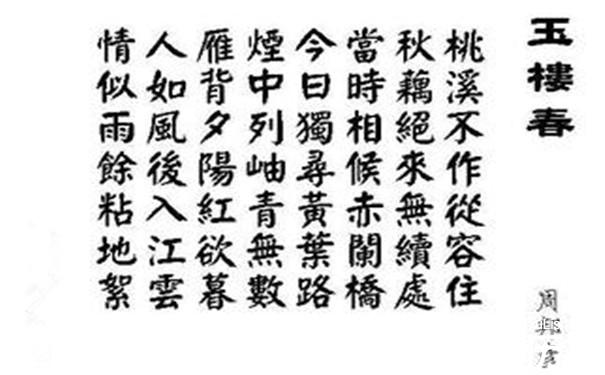 玉樓春
周邦彥
桃溪不作從容住
秋藕絕來無續處
當時相候赤闌橋
今日獨尋黃葉路
煙中列岫青無數
雁背夕陽紅欲暮
人如風後入江雲
情似雨餘粘地絮